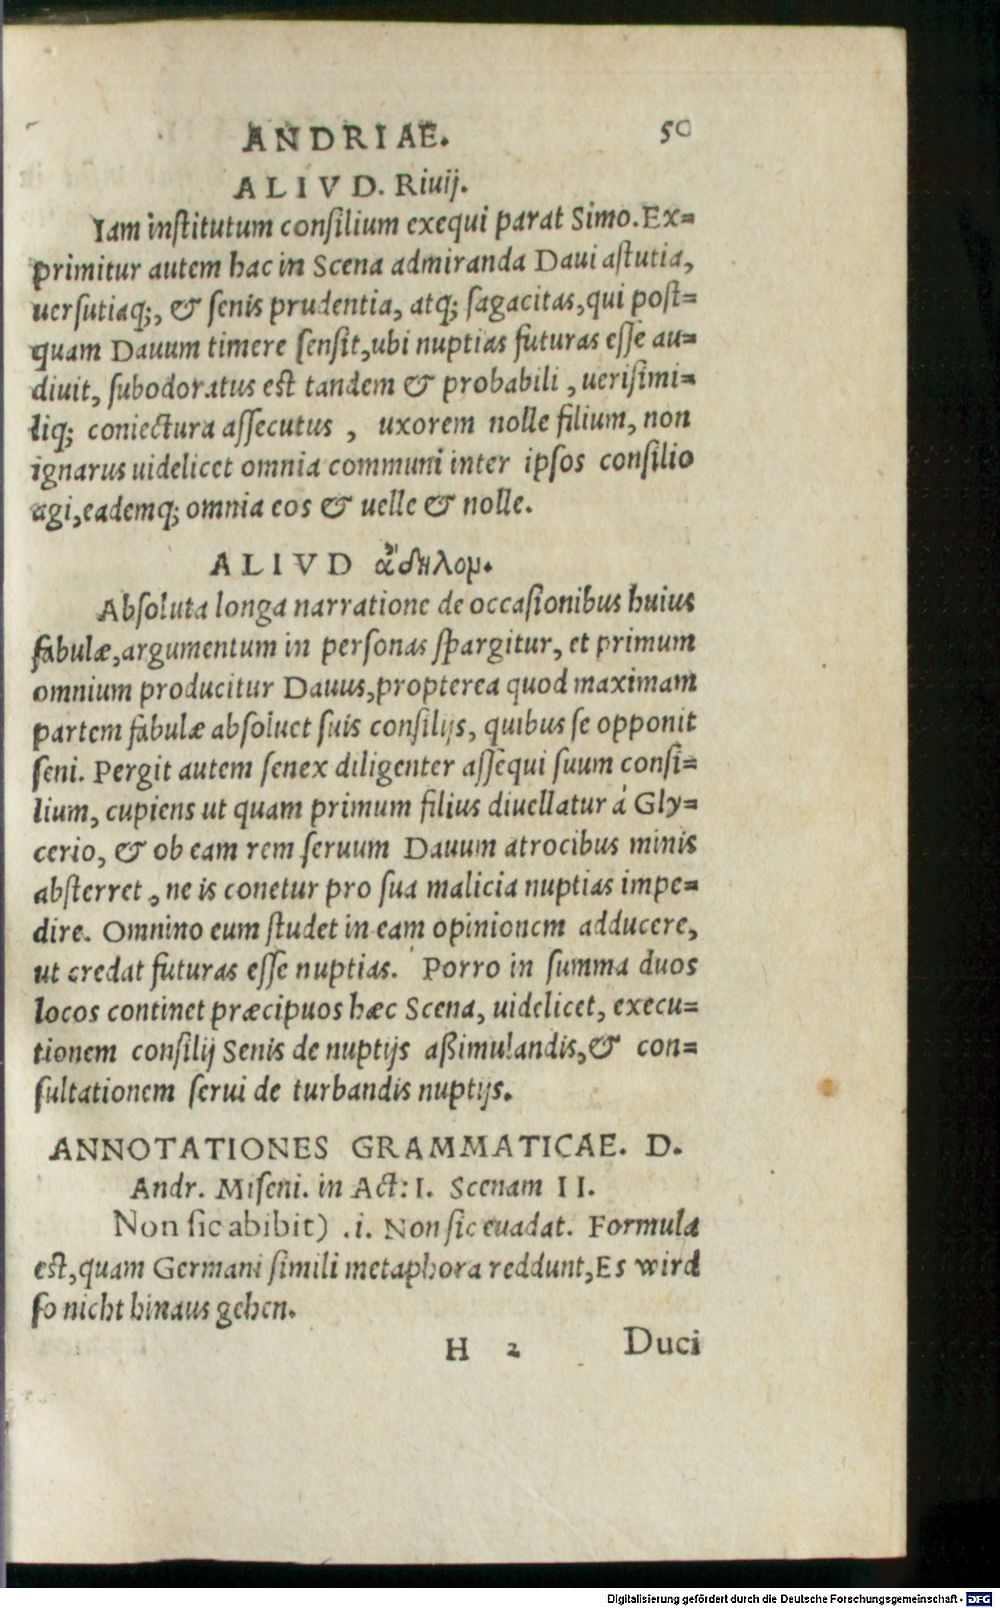 ANDRIAE. 50
ALIVD. Riuij.
Iam institutum consilium exequi parat Simo. Ex=
primitur autem hac in Scena admiranda Daui astutia,
uersutiaq;, & senis prudentia, atq; sagacitas, qui post=
quam Dauum timere sensit, ubi nuptias futuras esse au=
diuit, subodoratus est tandem & probabili, uerisimi=
liq; coniectura assecutus, uxorem nolle filium, non
ignarus uidelicet omnia communi inter ipsos consilio
agi, eademq; omnia eos & uelle & nolle.
ALIVD ἄδηλομ.
Absoluta longa narratione de occasionibus huius
fabulæ, argumentum in personas spargitur, et primum
omnium producitur Dauus, propterea quod maximam
partem fabulæ absoluet suis consilijs, quibus se opponit
seni. Pergit autem senex diligenter assequi suum consi=
lium, cupiens ut quam primum filius diuellatur á Gly=
cerio, & ob eam rem seruum Dauum atrocibus minis
absterret, ne is conetur pro sua malicia nuptias impe=
dire. Omnino eum studet in eam opinionem adducere,
ut credat futuras esse nuptias. Porro in summa duos
locos continet præcipuos hæc Scena, uidelicet, execu=
tionem consilij Senis de nuptijs aßimulandis, & con=
sultationem serui de turbandis nuptijs.
ANNOTATIONES GRAMMATICAE. D.
Andr. Miseni. in Act: I. Scenam II.
Non sic abibit) .i. Non sic euadat. Formula
est, quam Germani simili metaphora reddunt, Es wird
so nicht hinaus gehen.
H 2 Duci
Digitalisierung gefördert durch die Deutsche Forschungsgemeinschaft - DFG